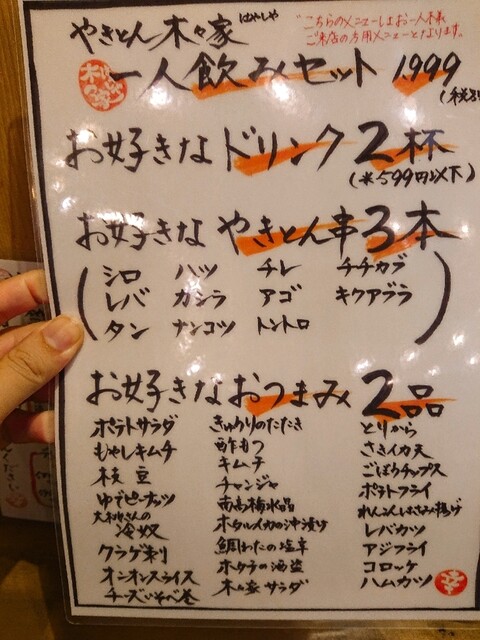 やきとん木々家 はやしや
"こちらのメニューはお一人様
ご来店の方用メニューとなります。
一人飲みセット 1.999
(税別
お好きなドリンク2杯
(※599円以下)
お好きなやきとん串3本
シロ ハツ チレ チチカブ
レバ カシラ アゴ キクアブラ
タン ナンコツ トントロ
お好きなおつまみ2品
ポテトサラダ きゅうりのたたき とりから
もやしキムチ 酢もつ さきイカ天
枝豆 キムチ ごぼうチップス
ゆでピーナッツ チャンジャ ポテトフライ
大和さんの冷奴 南高梅水晶 れんこんはさみ揚げ
クラゲ刺 ホタルイカの沖漬け レバカツ
オニオンスライス 鯛わたの塩辛 アジフライ
チーズいそべ巻 ホタテの酒盗 コロッケ
木々家サラダ ハムカツ